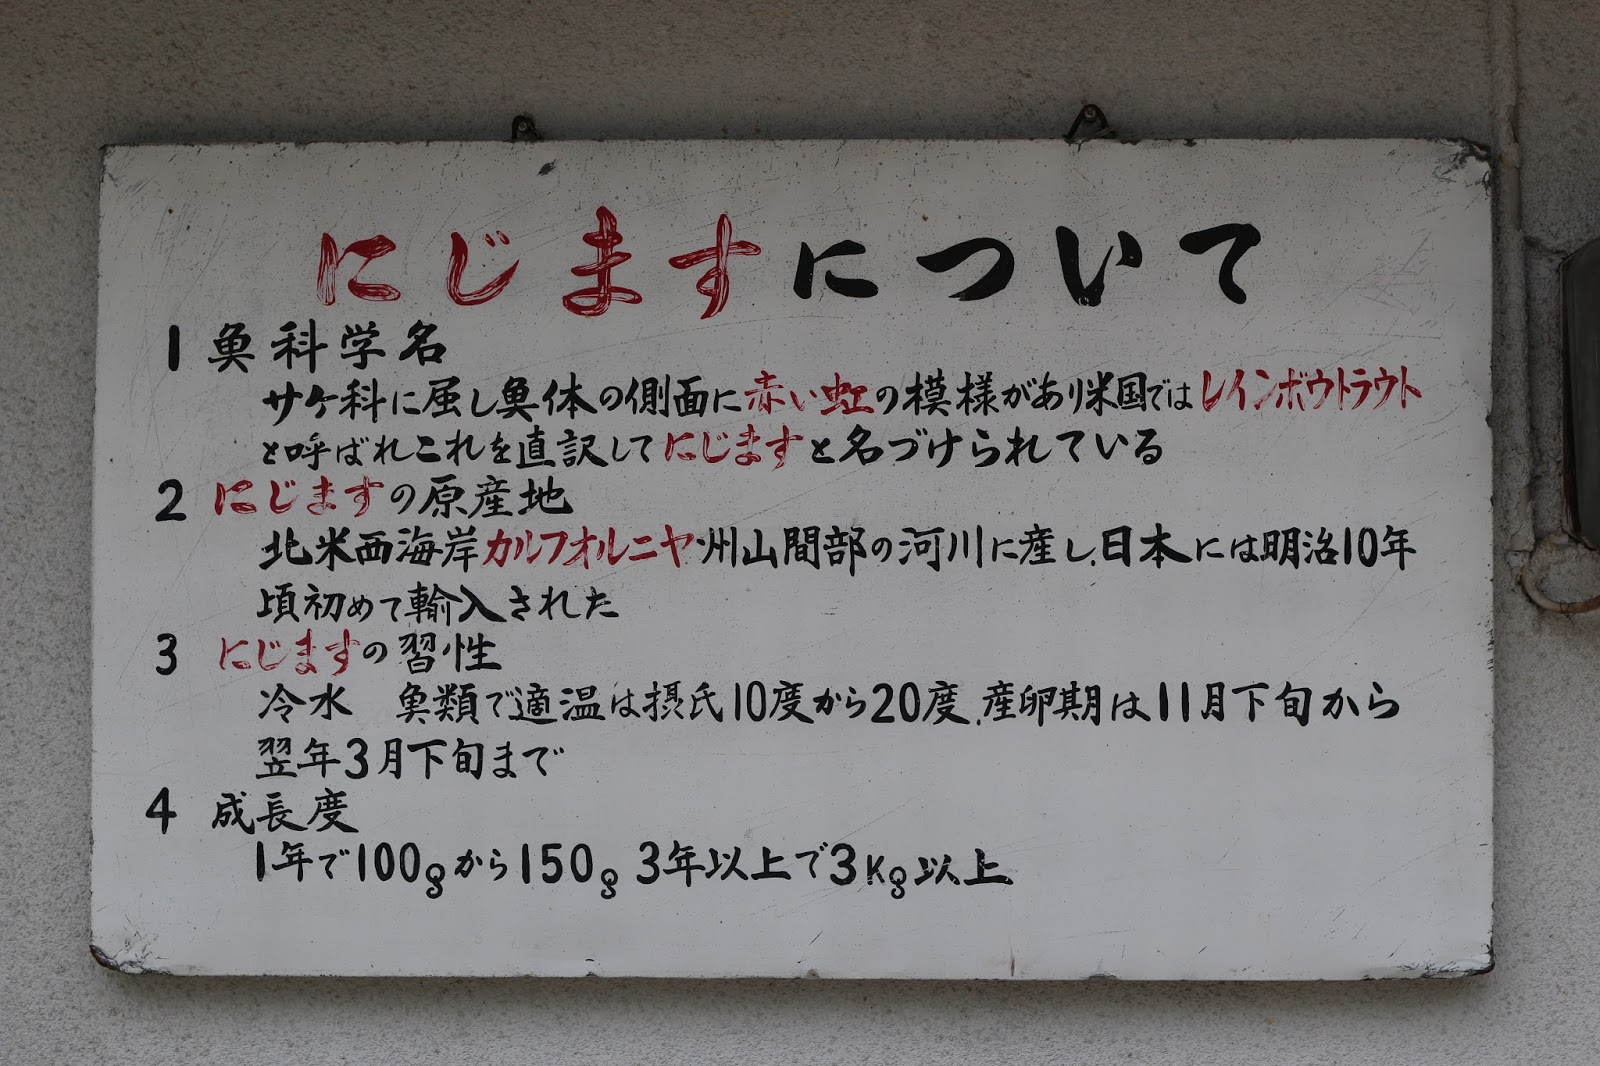 にじますについて
1 魚科学名
サケ科に属し魚体の側面に赤い虹の模様があり米国ではレインボウトラウト
と呼ばれこれを直訳してにじますと名づけられている
2 にじますの原産地
北米西海岸カルフオルニヤ州山間部の河川に産し、日本には明治10年
頃初めて輸入された
3 にじますの習性
冷水 魚類で適温は摂氏10度から20度、産卵期は11月下旬から
翌年3月下旬まで
4 成長度
1年で100gから150g 3年以上で3Kg以上